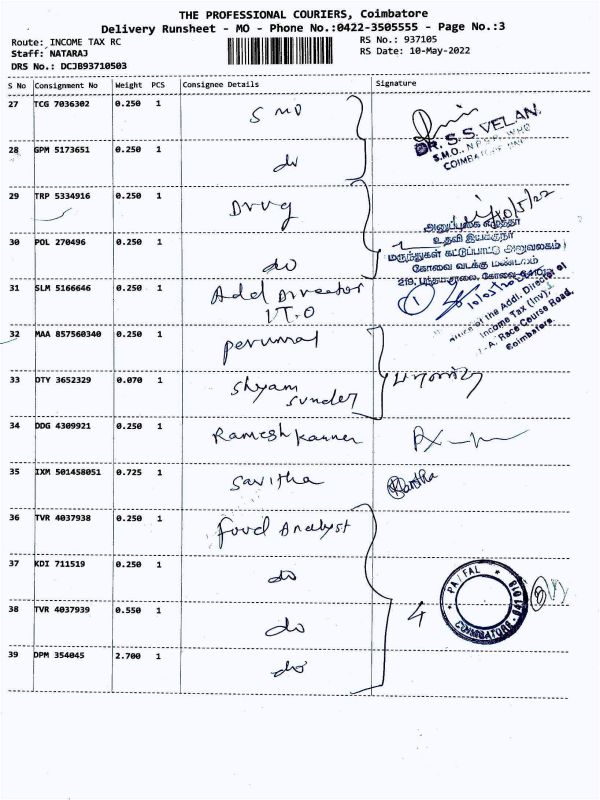 THE PROFESSIONAL COURIERS, Coimbatore
Delivery Runsheet - MO - Phone No.:0422-3505555 - Page No.:3
Route: INCOME TAX RC
RS No.: 937105
Staff: NATARAJ
RS Date: 10-May-2022
DRS No.: DCJB93710503
S No Consignment No Weight PCS Consignee Details Signature
27 TCG 7036302 0.250 1 SMO
DR. S. S. VELAN,
S.M.O., N.P.S.P., WHO
28 GPM 5173651 0.250 1 do
29 TRP 5334916 0.250 1 Drug
10/5/22
உதவி இயக்குநர்
மருந்துகள் கட்டுப்பாட்டு அலுவலகம்
கோவை வடக்கு மண்டலம்
30 POL 270496 0.250 1 do
31 SLM 5166646 0.250 1 Add Director
I.T.O
1
Office of the Addl. Director of
Income Tax (Inv),
Race Course Road,
Coimbatore.
32 MAA 857560340 0.250 1 perumal
33 OTY 3652329 0.070 1 Shyam
Sunder
34 DDG 4309921 0.250 1 Ramesh Kanner
35 IXM 501458051 0.725 1 Savitha
36 TVR 4037938 0.250 1 Food Analyst
37 KDI 711519 0.250 1 do
38 TVR 4037939 0.550 1 do
4
PA/FAL
COIMBATORE - 641 018
39 DPM 354045 2.700 1 do